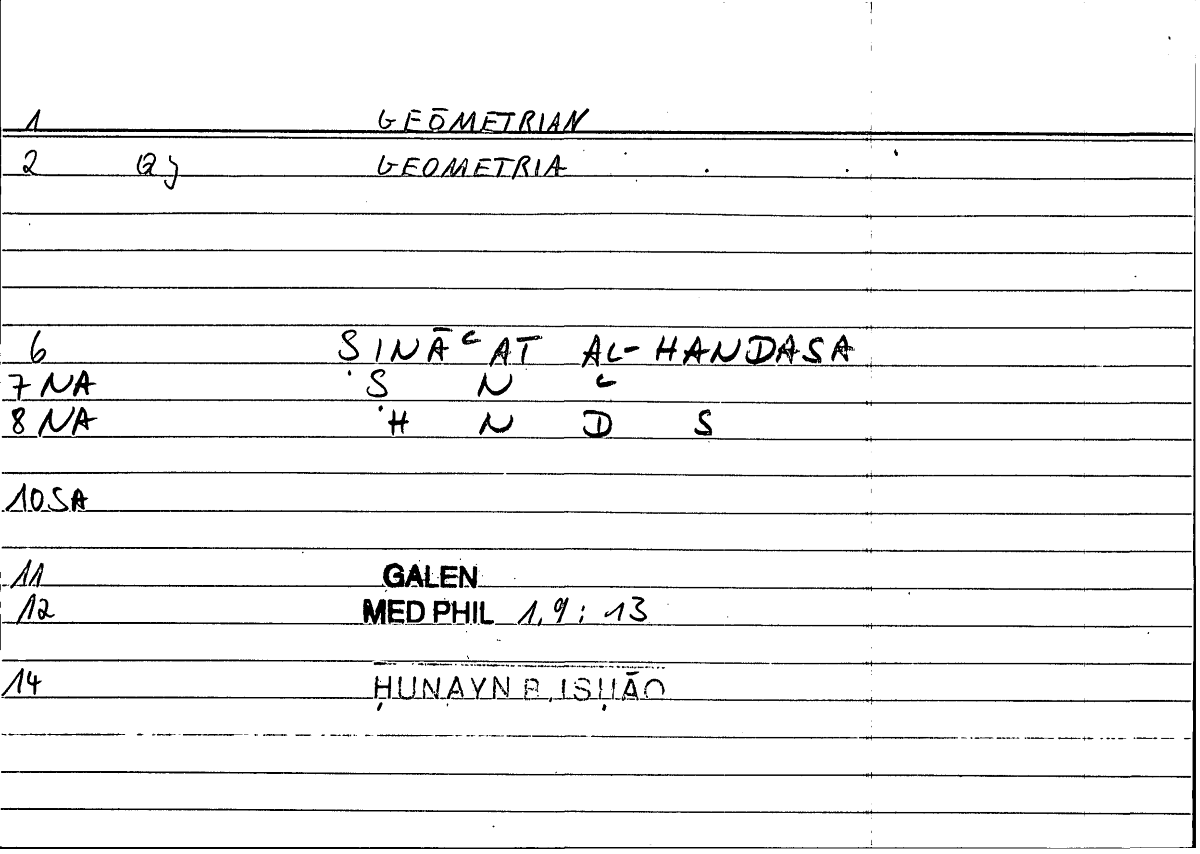 1 GEŌMETRIAN
2 Qj GEOMETRIA
6 SINĀʿAT AL-HANDASA
7 NA S N ʿ
8 NA H N D S
10 SA
11 GALEN
12 MED PHIL 1,9 : 13
14 ḤUNAYN B. ISḤĀQ